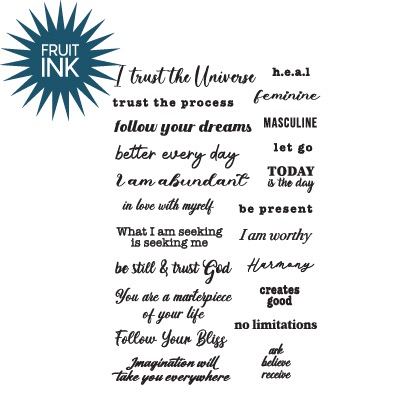 FRUIT
INK
I trust the Universe
trust the process
follow your dreams
better every day
I am abundant
in love with myself
What I am seeking
is seeking me
be still & trust God
You are a masterpiece
of your life
Follow Your Bliss
Imagination will
take you everywhere
h.e.a.l
feminine
MASCULINE
let go
TODAY
is the day
be present
I am worthy
Harmony
creates
good
no limitations
ask
believe
receive